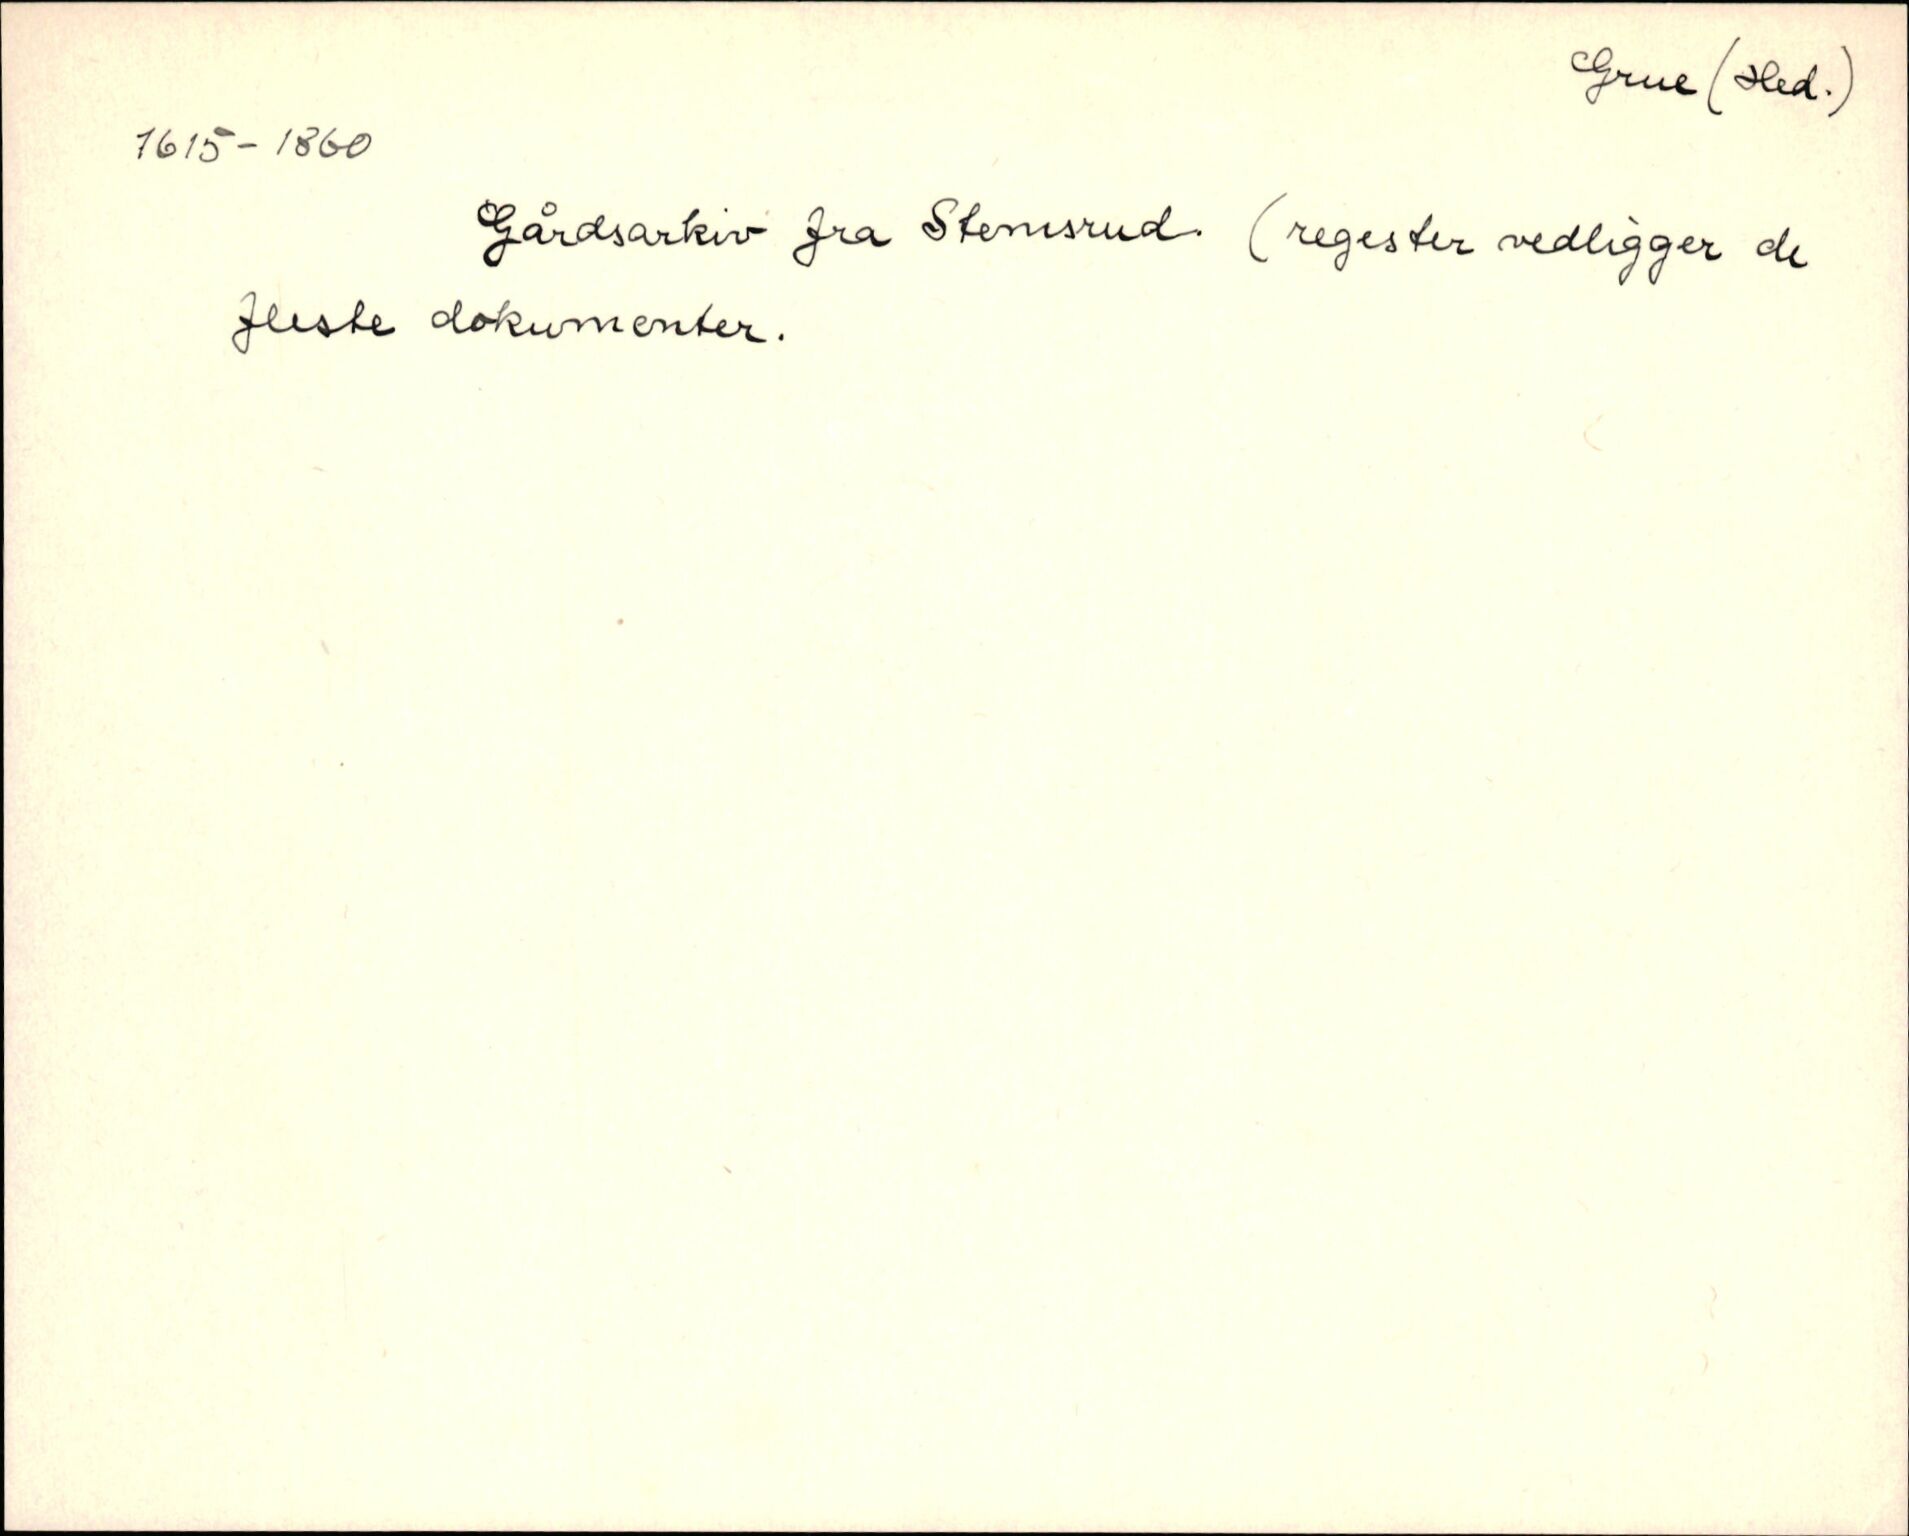 Grue (Hed.)
1615-1860
Gårdsarkiv fra Stemsrud. (regester vedligger de
fleste dokumenter.